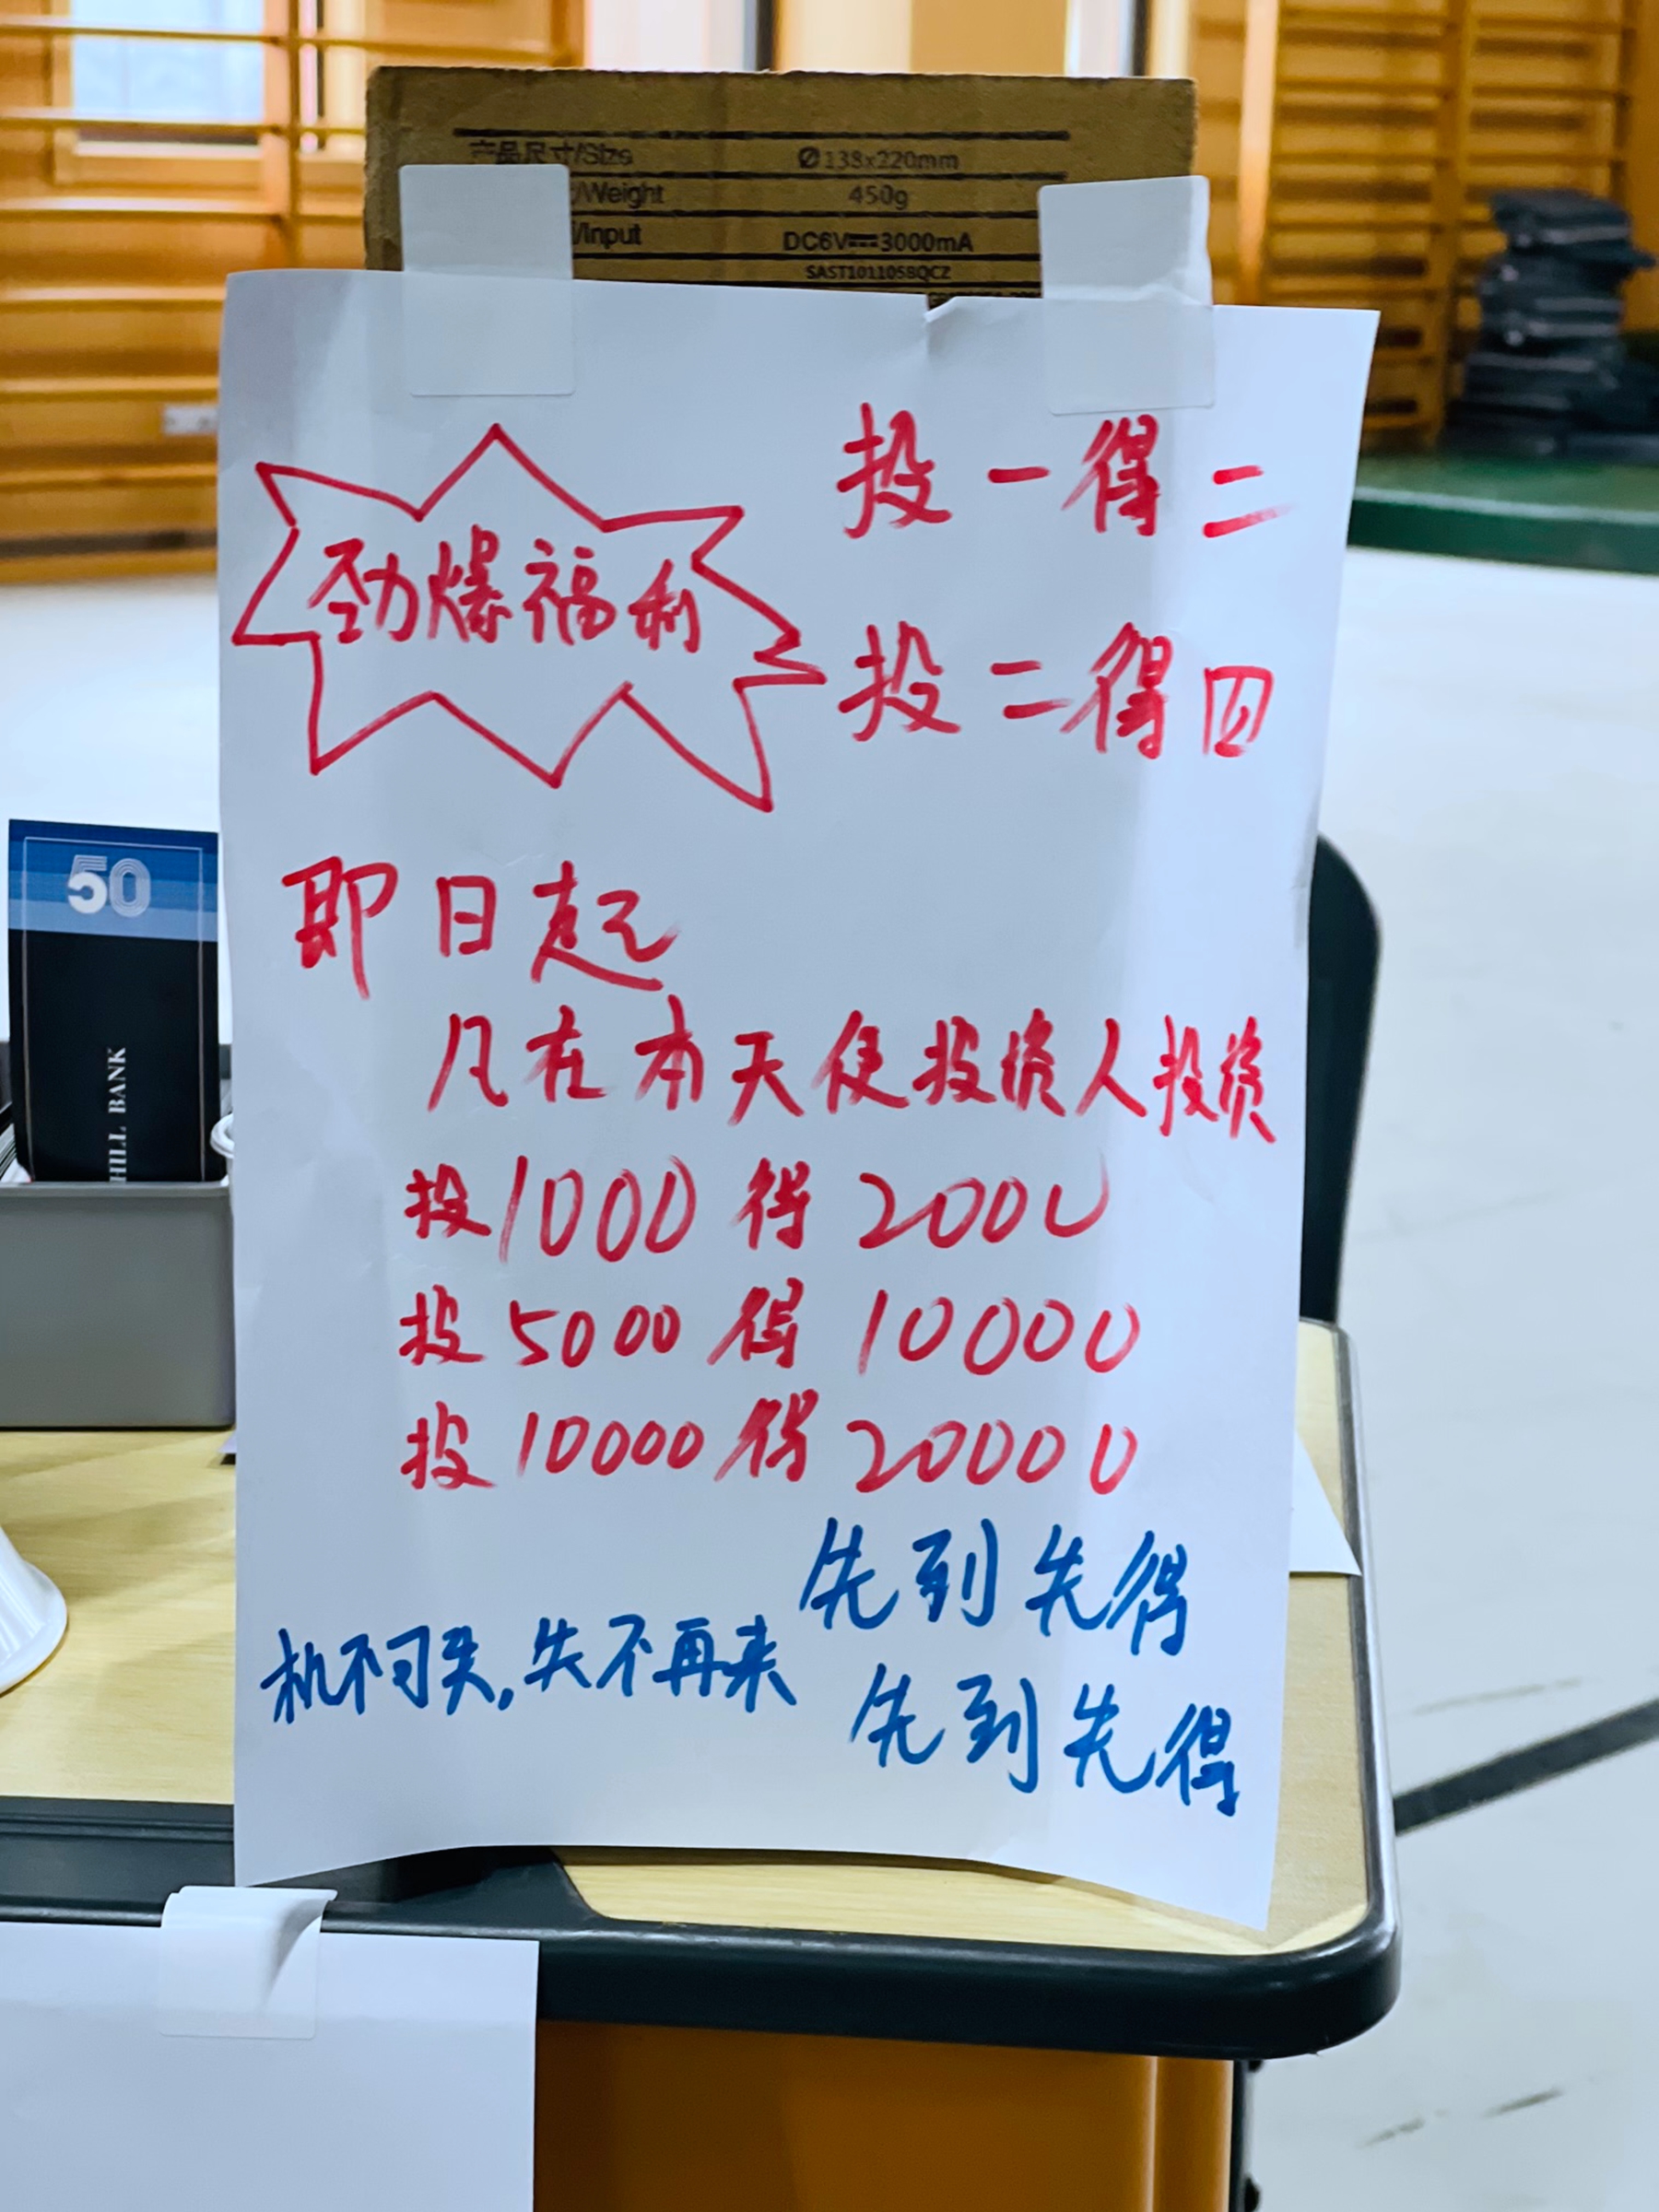 产品尺寸/Size Ø138x220mm
/Weight 450g
/Input DC6V⎓3000mA
SAST101105BQCZ
劲爆福利
投一得二
投二得四
即日起
凡在本天使投资人投资
投1000得2000
投5000得10000
投10000得20000
先到先得
机不可失,失不再来
先到先得
50
HILL BANK